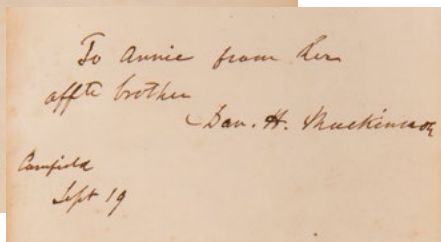 To Annie from her
affte brother
Dav. H. Mackinnon
Camfield
Sept 19